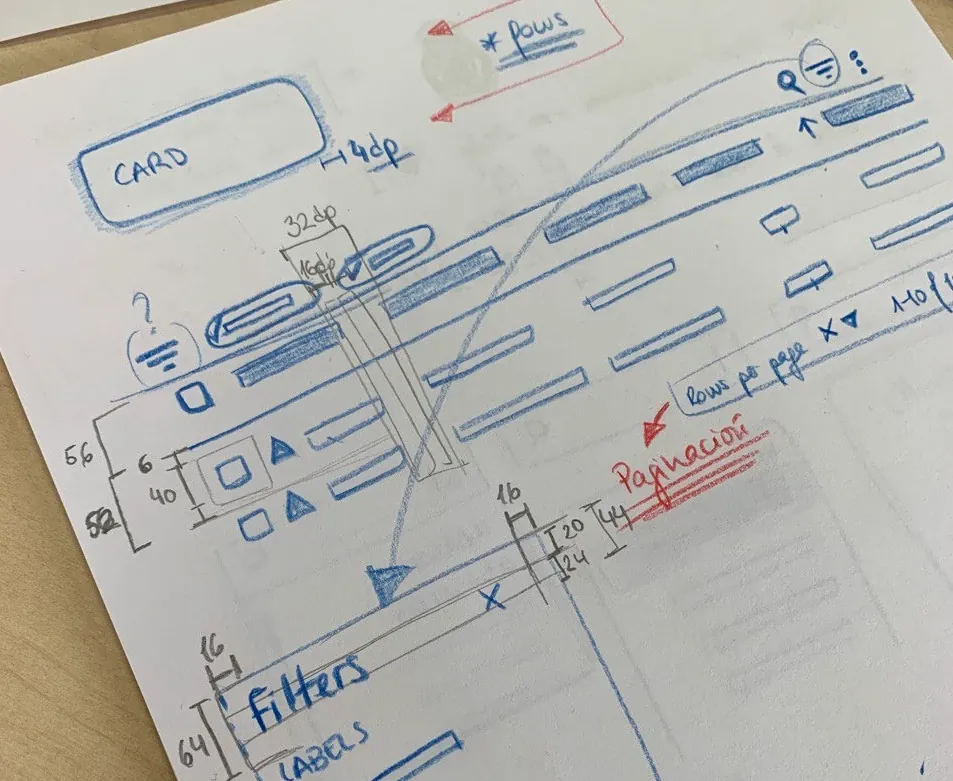 * Rows
CARD
4dp
32dp
16dp
?
Rows per page X
1-10
56
6
40
52
Paginación
16
20
44
24
X
16
Filters
64
LABELS